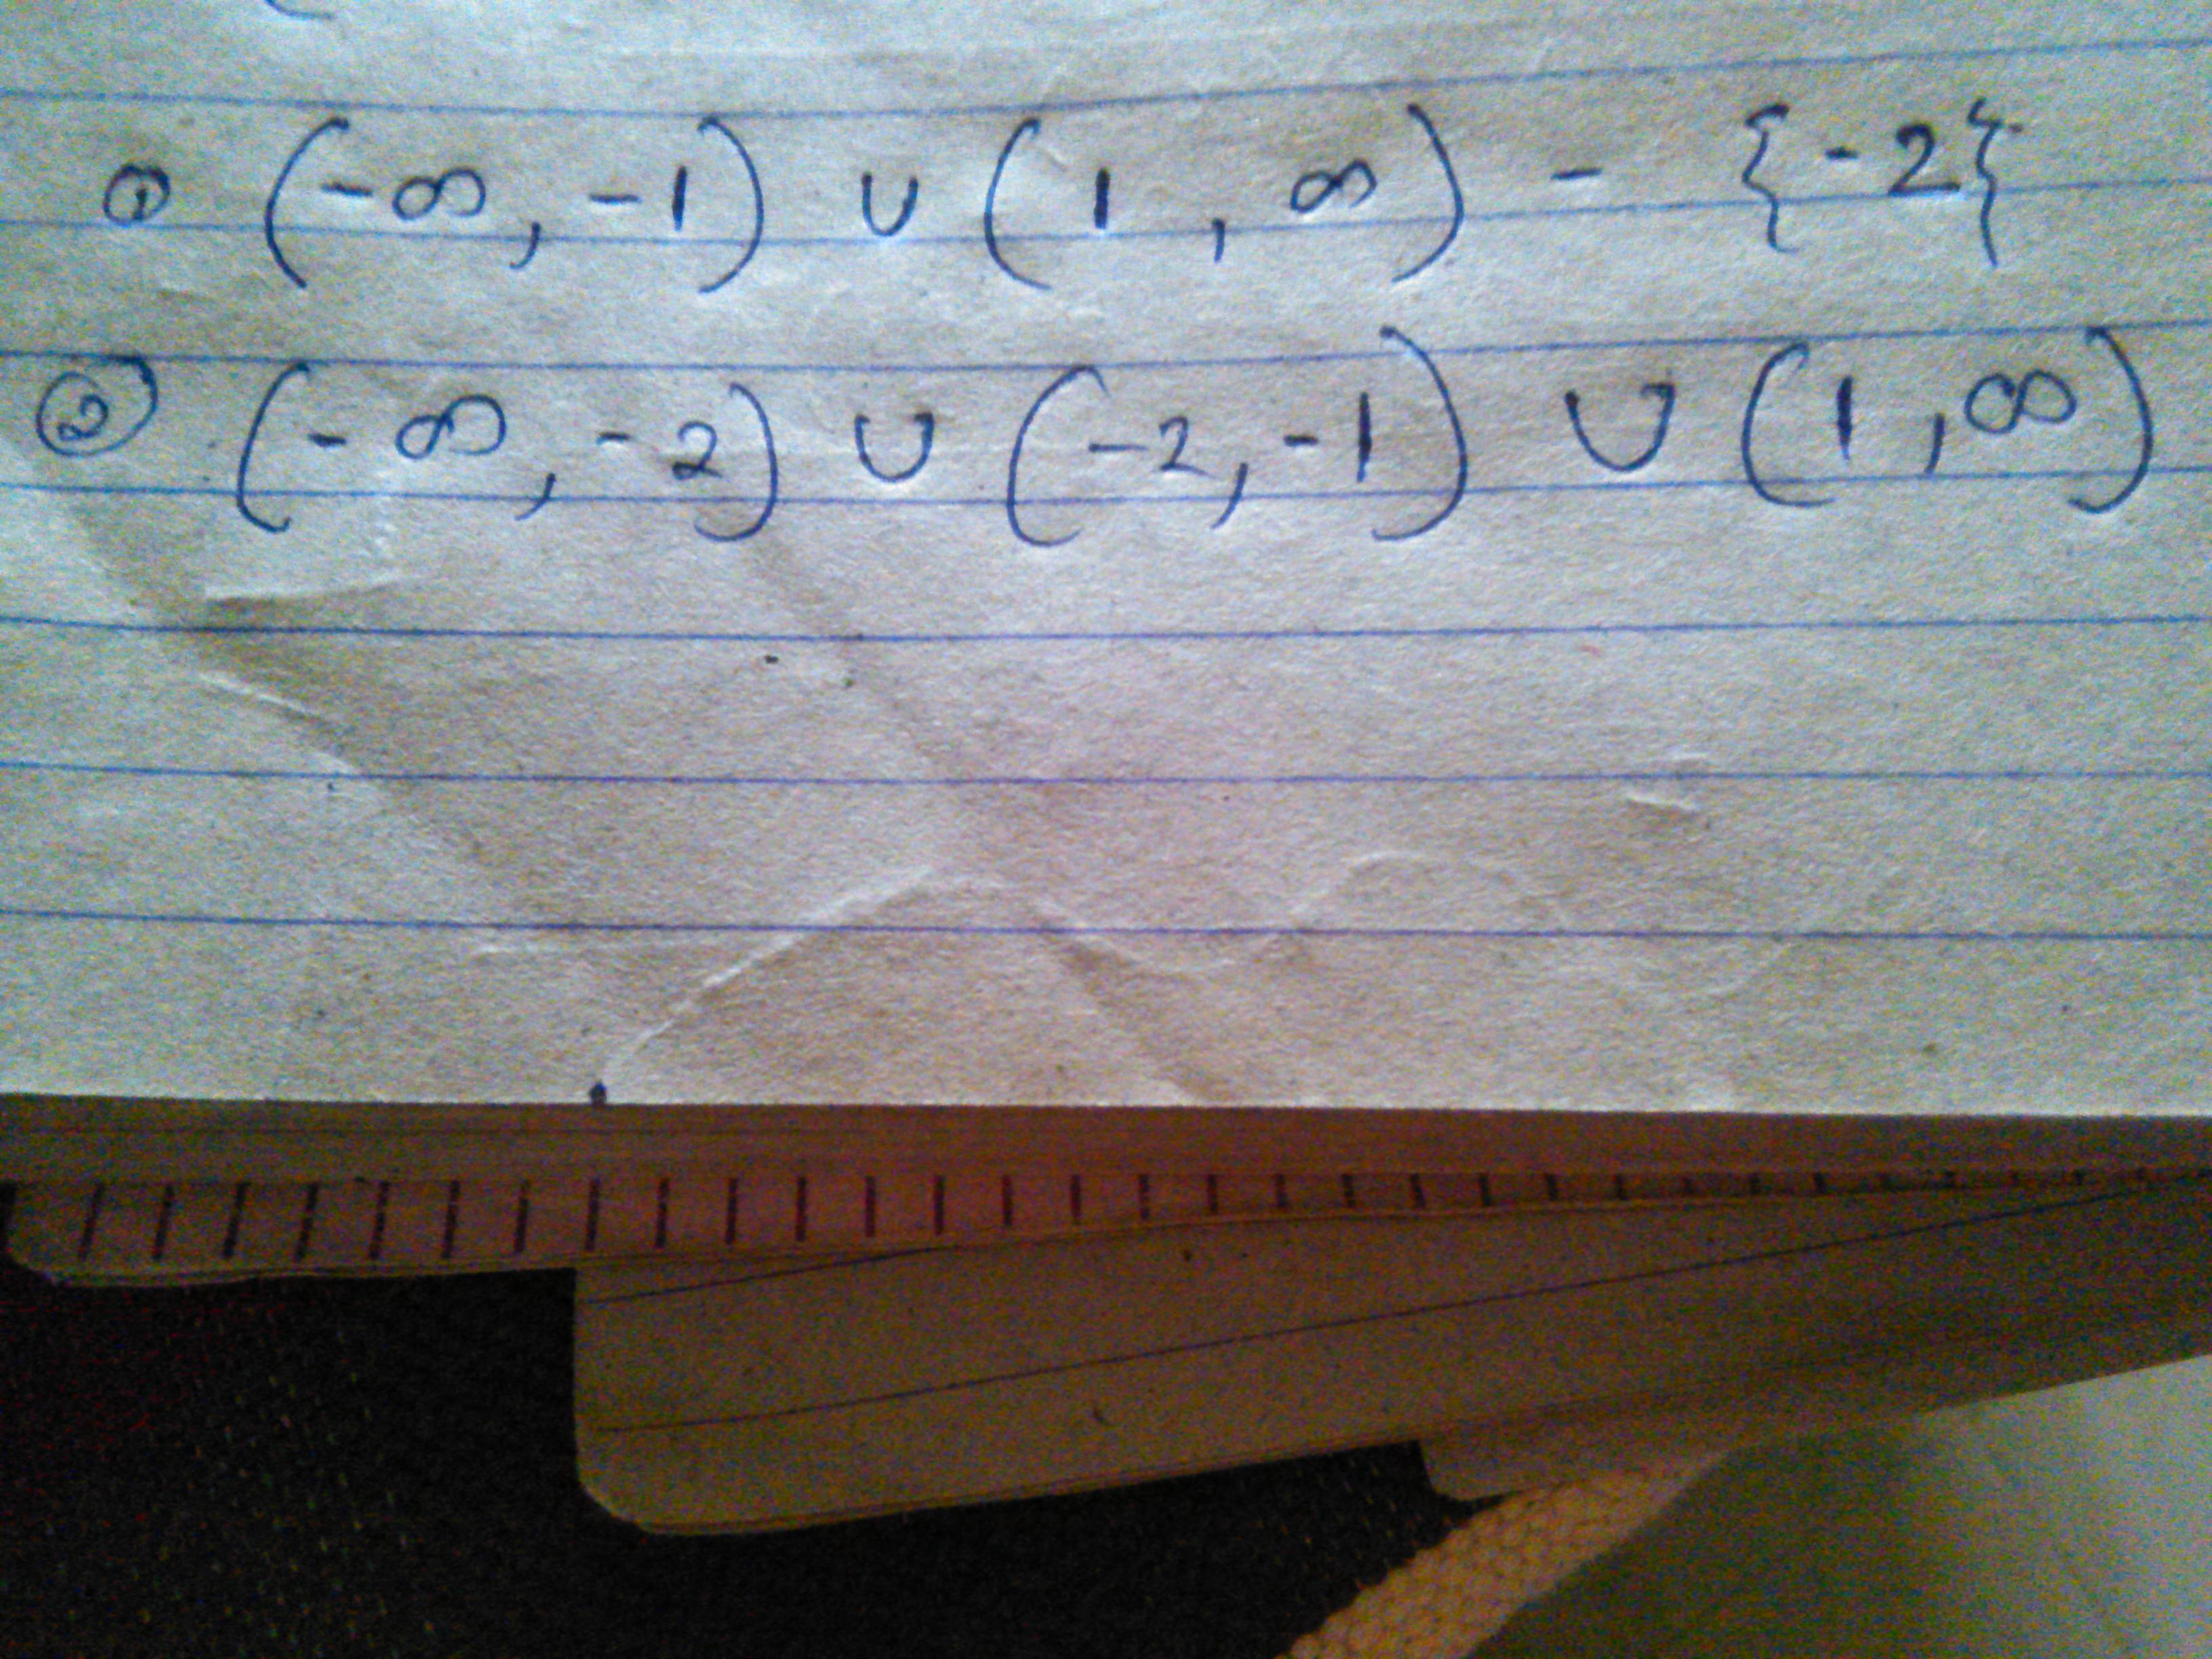 ① (-∞, -1) ∪ (1, ∞) - {-2}
② (-∞, -2) ∪ (-2, -1) ∪ (1, ∞)